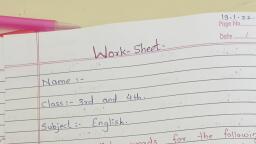 19-1-22
Page No.
Date /
Work-Sheet-
Name :-
Class:- 3rd and 4th.
Subject :- English.
words for the following